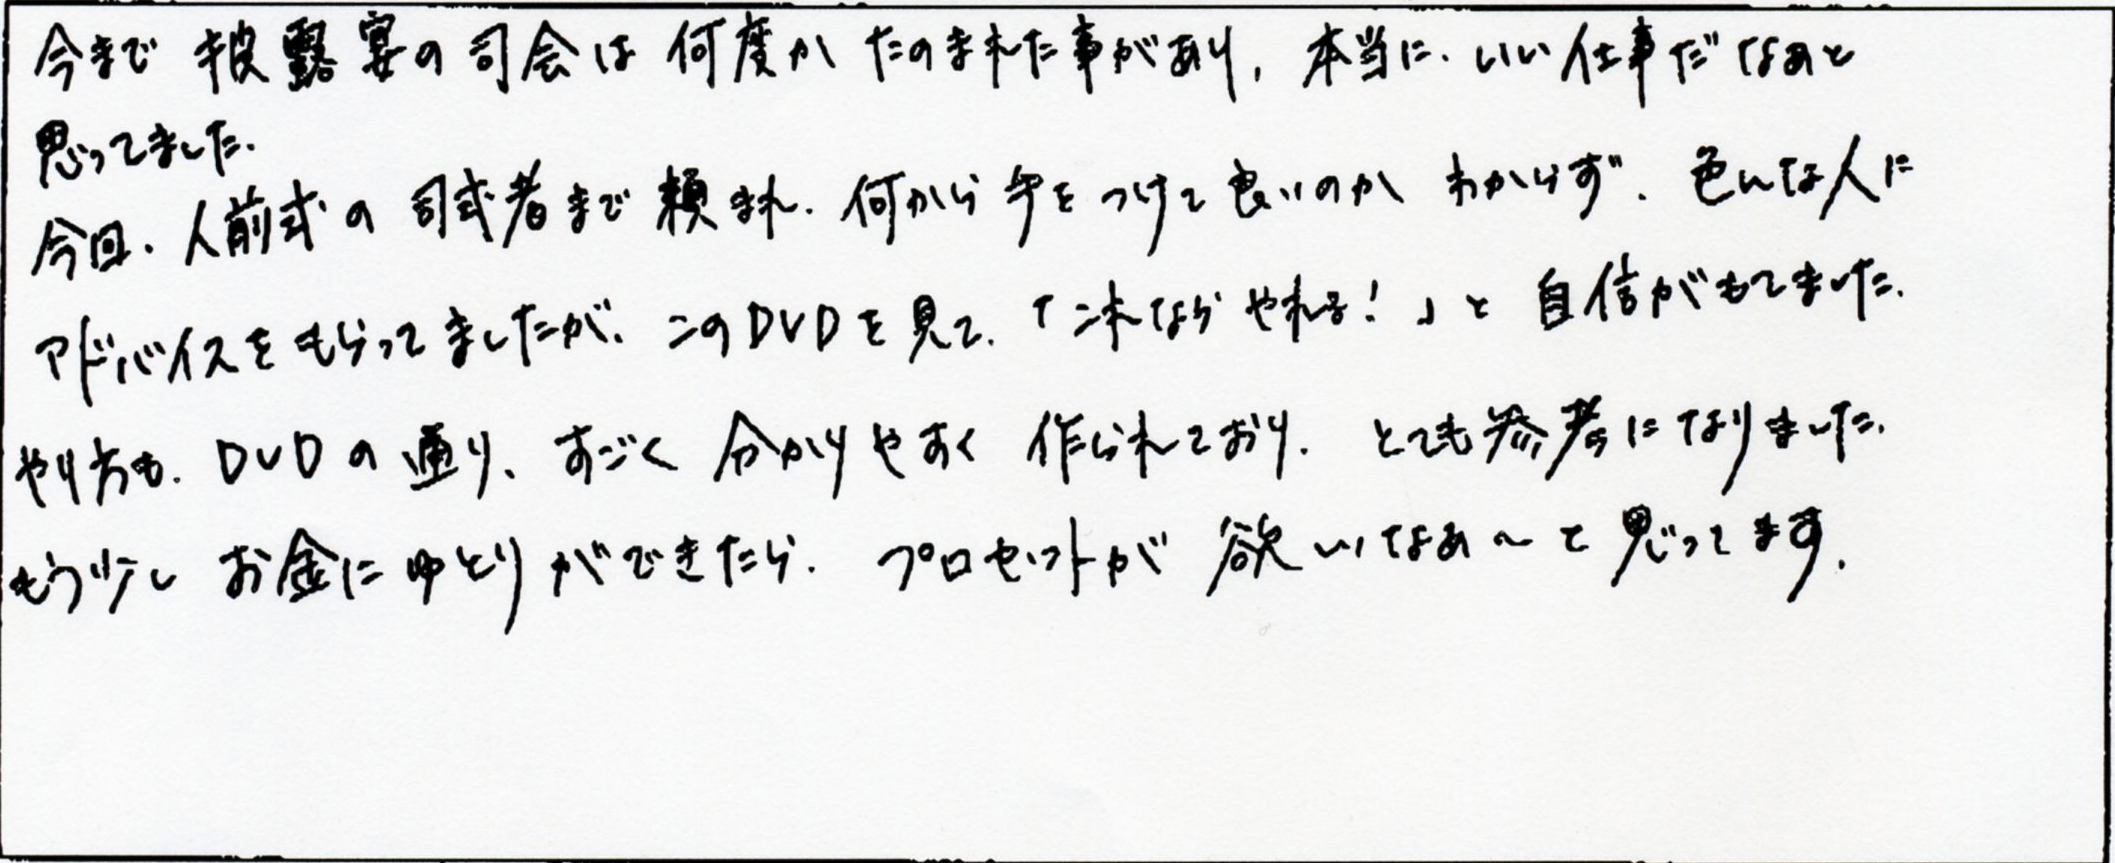 今まで 披露宴の司会は 何度か たのまれた事があり、本当に、いい仕事だなぁと
思ってました。
今回、人前式の 司式者まで 頼まれ、何から 手をつけて良いのか わからず、色んな人に
アドバイスをもらってましたが、このDVDを見て、「これなら やれる！」と 自信がもてました。
やり方も、DVDの通り、すごく 分かりやすく 作られており、とても参考になりました。
もう少し お金にゆとりができたら、プロセットが 欲しいなぁ〜と思ってます。